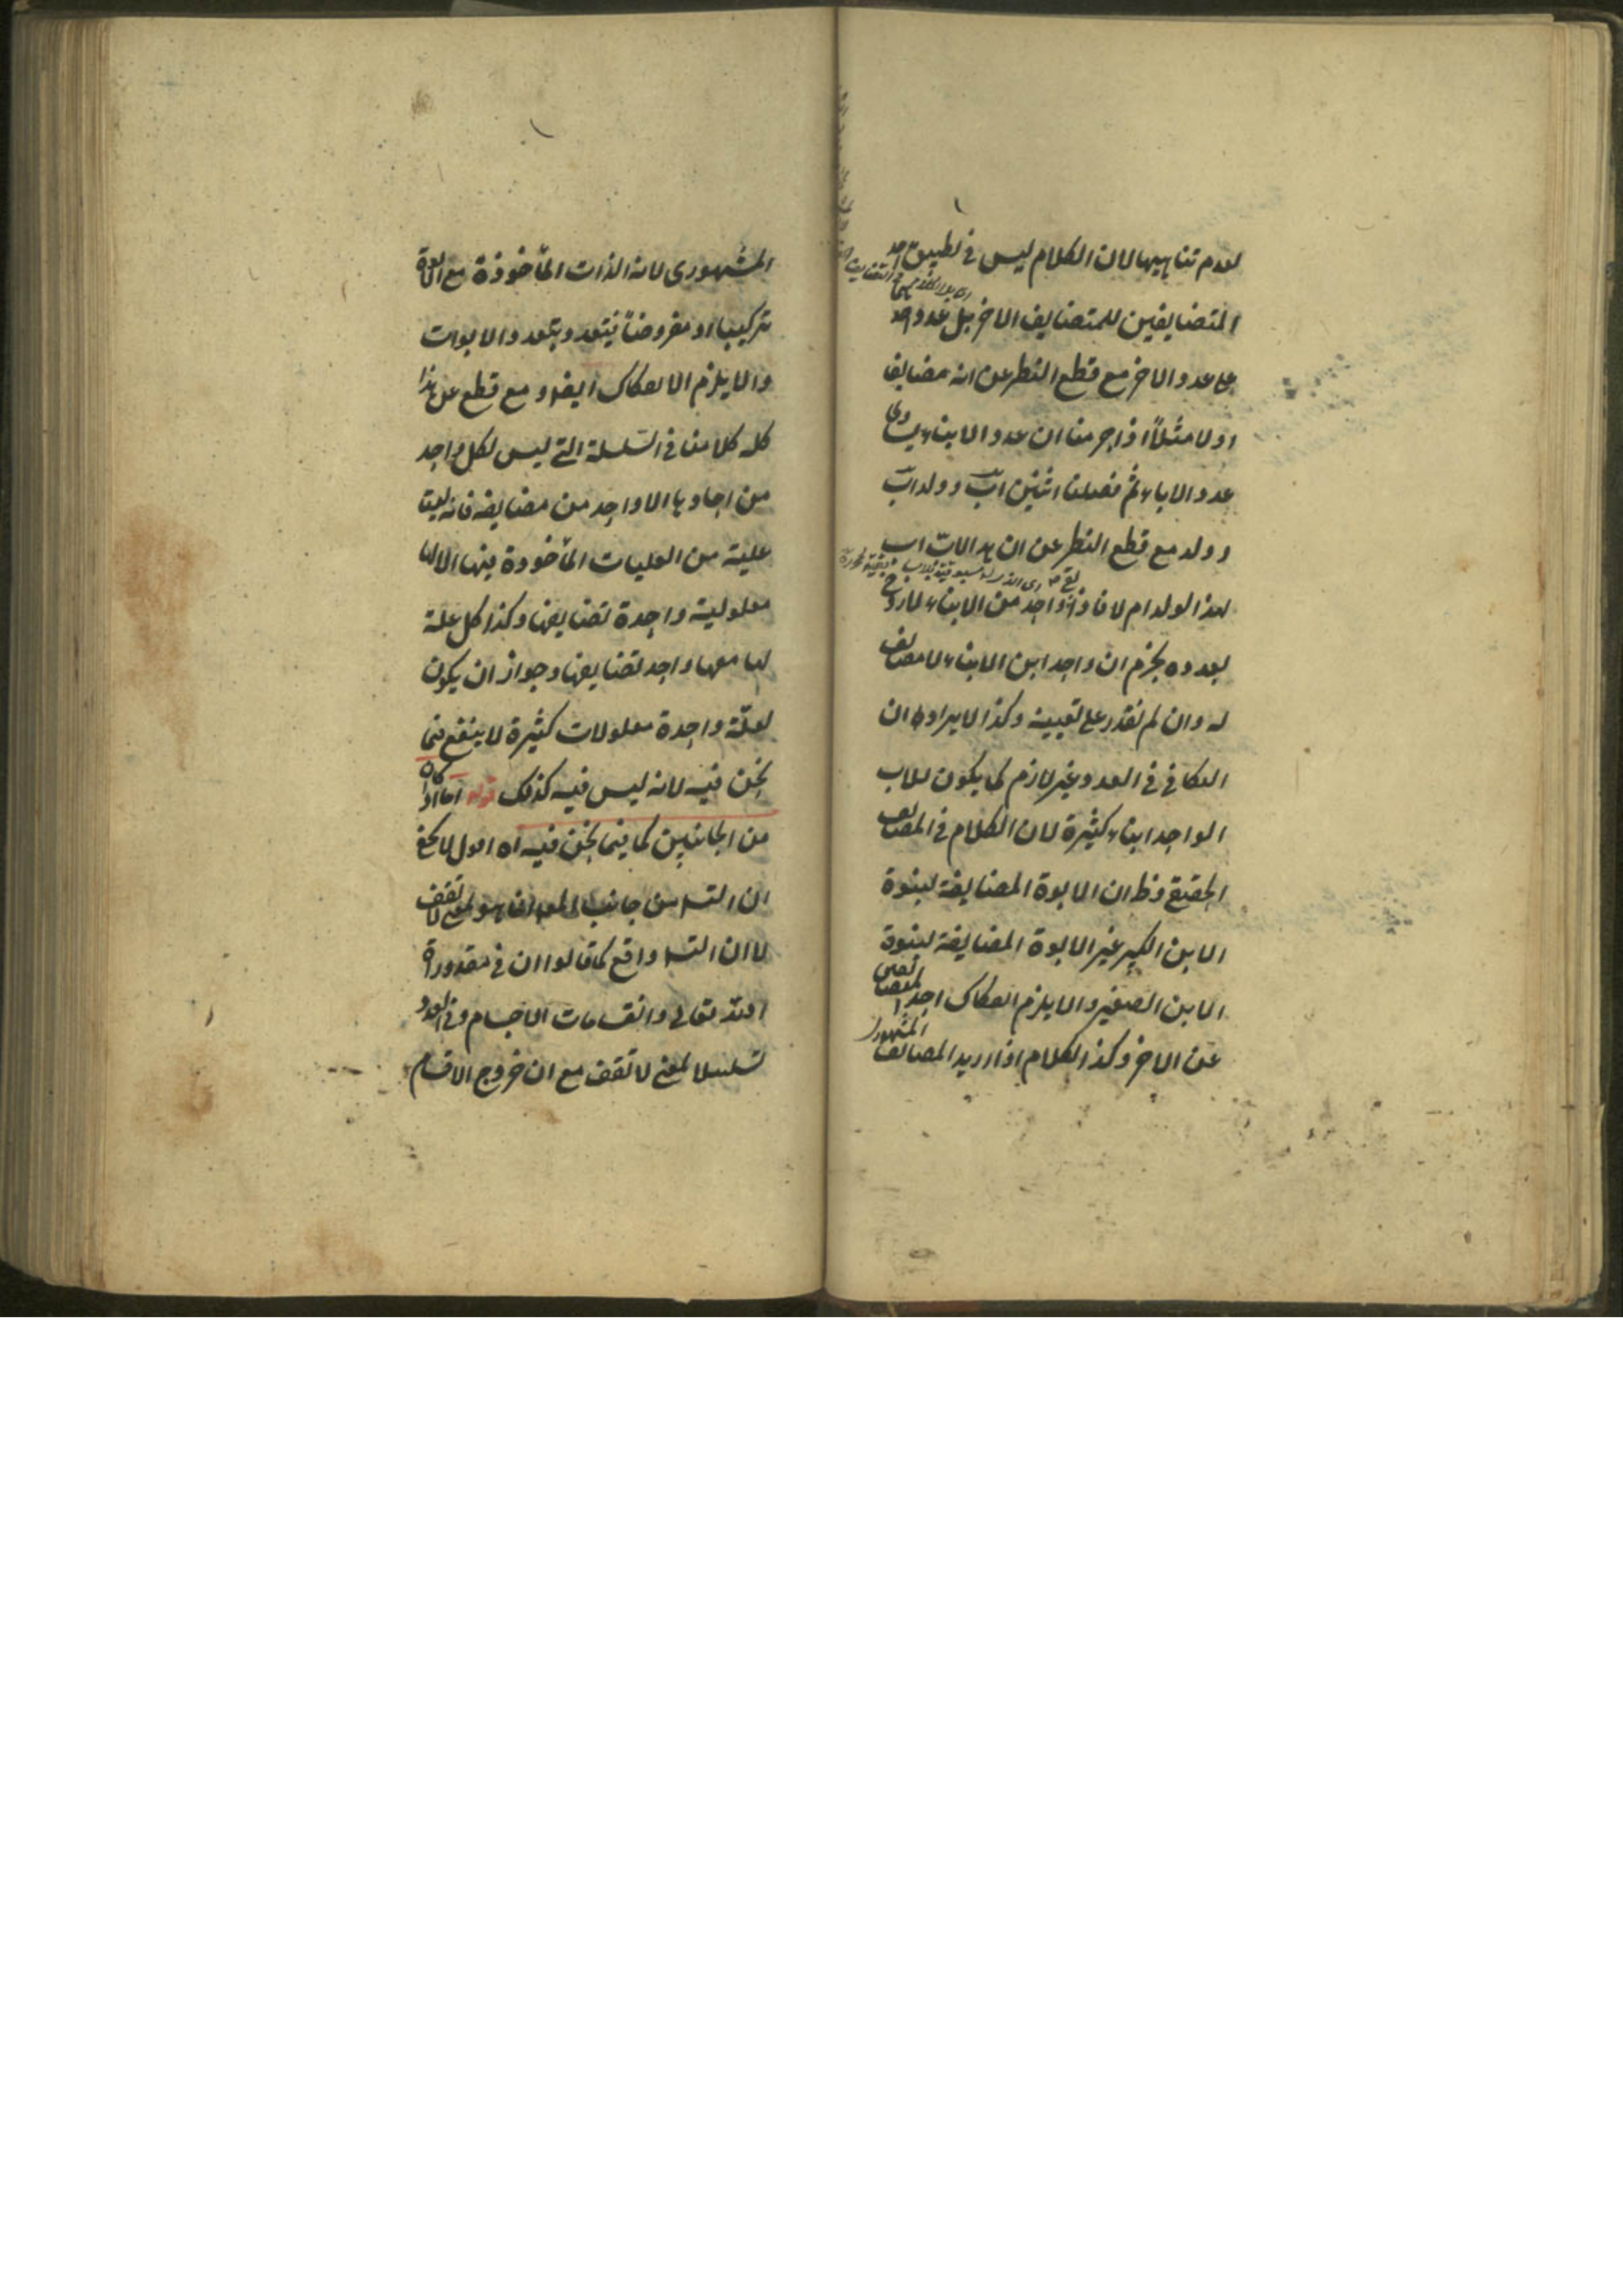 لعدم تناهيها لان الكلام ليس في تطبيق احد
المتضايفين للمتضايف الاخر بل عدد احد
على عدد الاخر مع قطع النظر عن انه مضايف
اولا مثلا اذا جزمنا ان عدد الابناء يساوي
عدد الاباء ثم فصلنا اثنين اب وولد اب
وولد مع قطع النظر عن ان هذا الاب اب
لهذا الولد ام لا فاذا واحد من الابناء
بعده يجزم ان واحد ابن الابناء لا مضايف
له وان لم نقدر على تعيينه وكذا الايراد ان
التكافي في العدد غير لازم كما يكون للاب
الواحد ابناء كثيرة لان الكلام في المضايف
الحقيقي وظ ان الابوة المضايفة لبنوة
الابن الكبير غير الابوة المضايفة لبنوة
الابن الصغير والا يلزم انفكاك احد المتضايفين
عن الاخر وكذا الكلام اذا اريد المضايف المشهور
المشهوري لانه الذات المأخوذة مع
تركيبا او معروضا فيتعدد بتعدد الابوات
والا يلزم الانفكاك ايضا ومع قطع عن هذا
كله كلامنا في السلسلة التي ليس لكل واحد
من احادها الا واحد من مضايفه فانه ليت
علية من العليات المأخوذة فيها الا لها
معلولية واحدة تضايفها وكذا كل علة
لها معها واحد تضايفها وجواز ان يكون
لعلة واحدة معلولات كثيرة لا ينفع فيما
نحن فيه لانه ليس فيه كذلك قوله اما اذا كان
من الجانبين كما فيما نحن فيه اه اقول لا يخفى
ان التسـ من جانب المعلول انما هو بمعنى لا تقف
لا ان التسـ واقع كما قالوا ان في مقدورة
الله تعالى وانقسامات الاجسام وفي العدد
تسلسلا بمعنى لا تقف مع ان خروج الاقسام